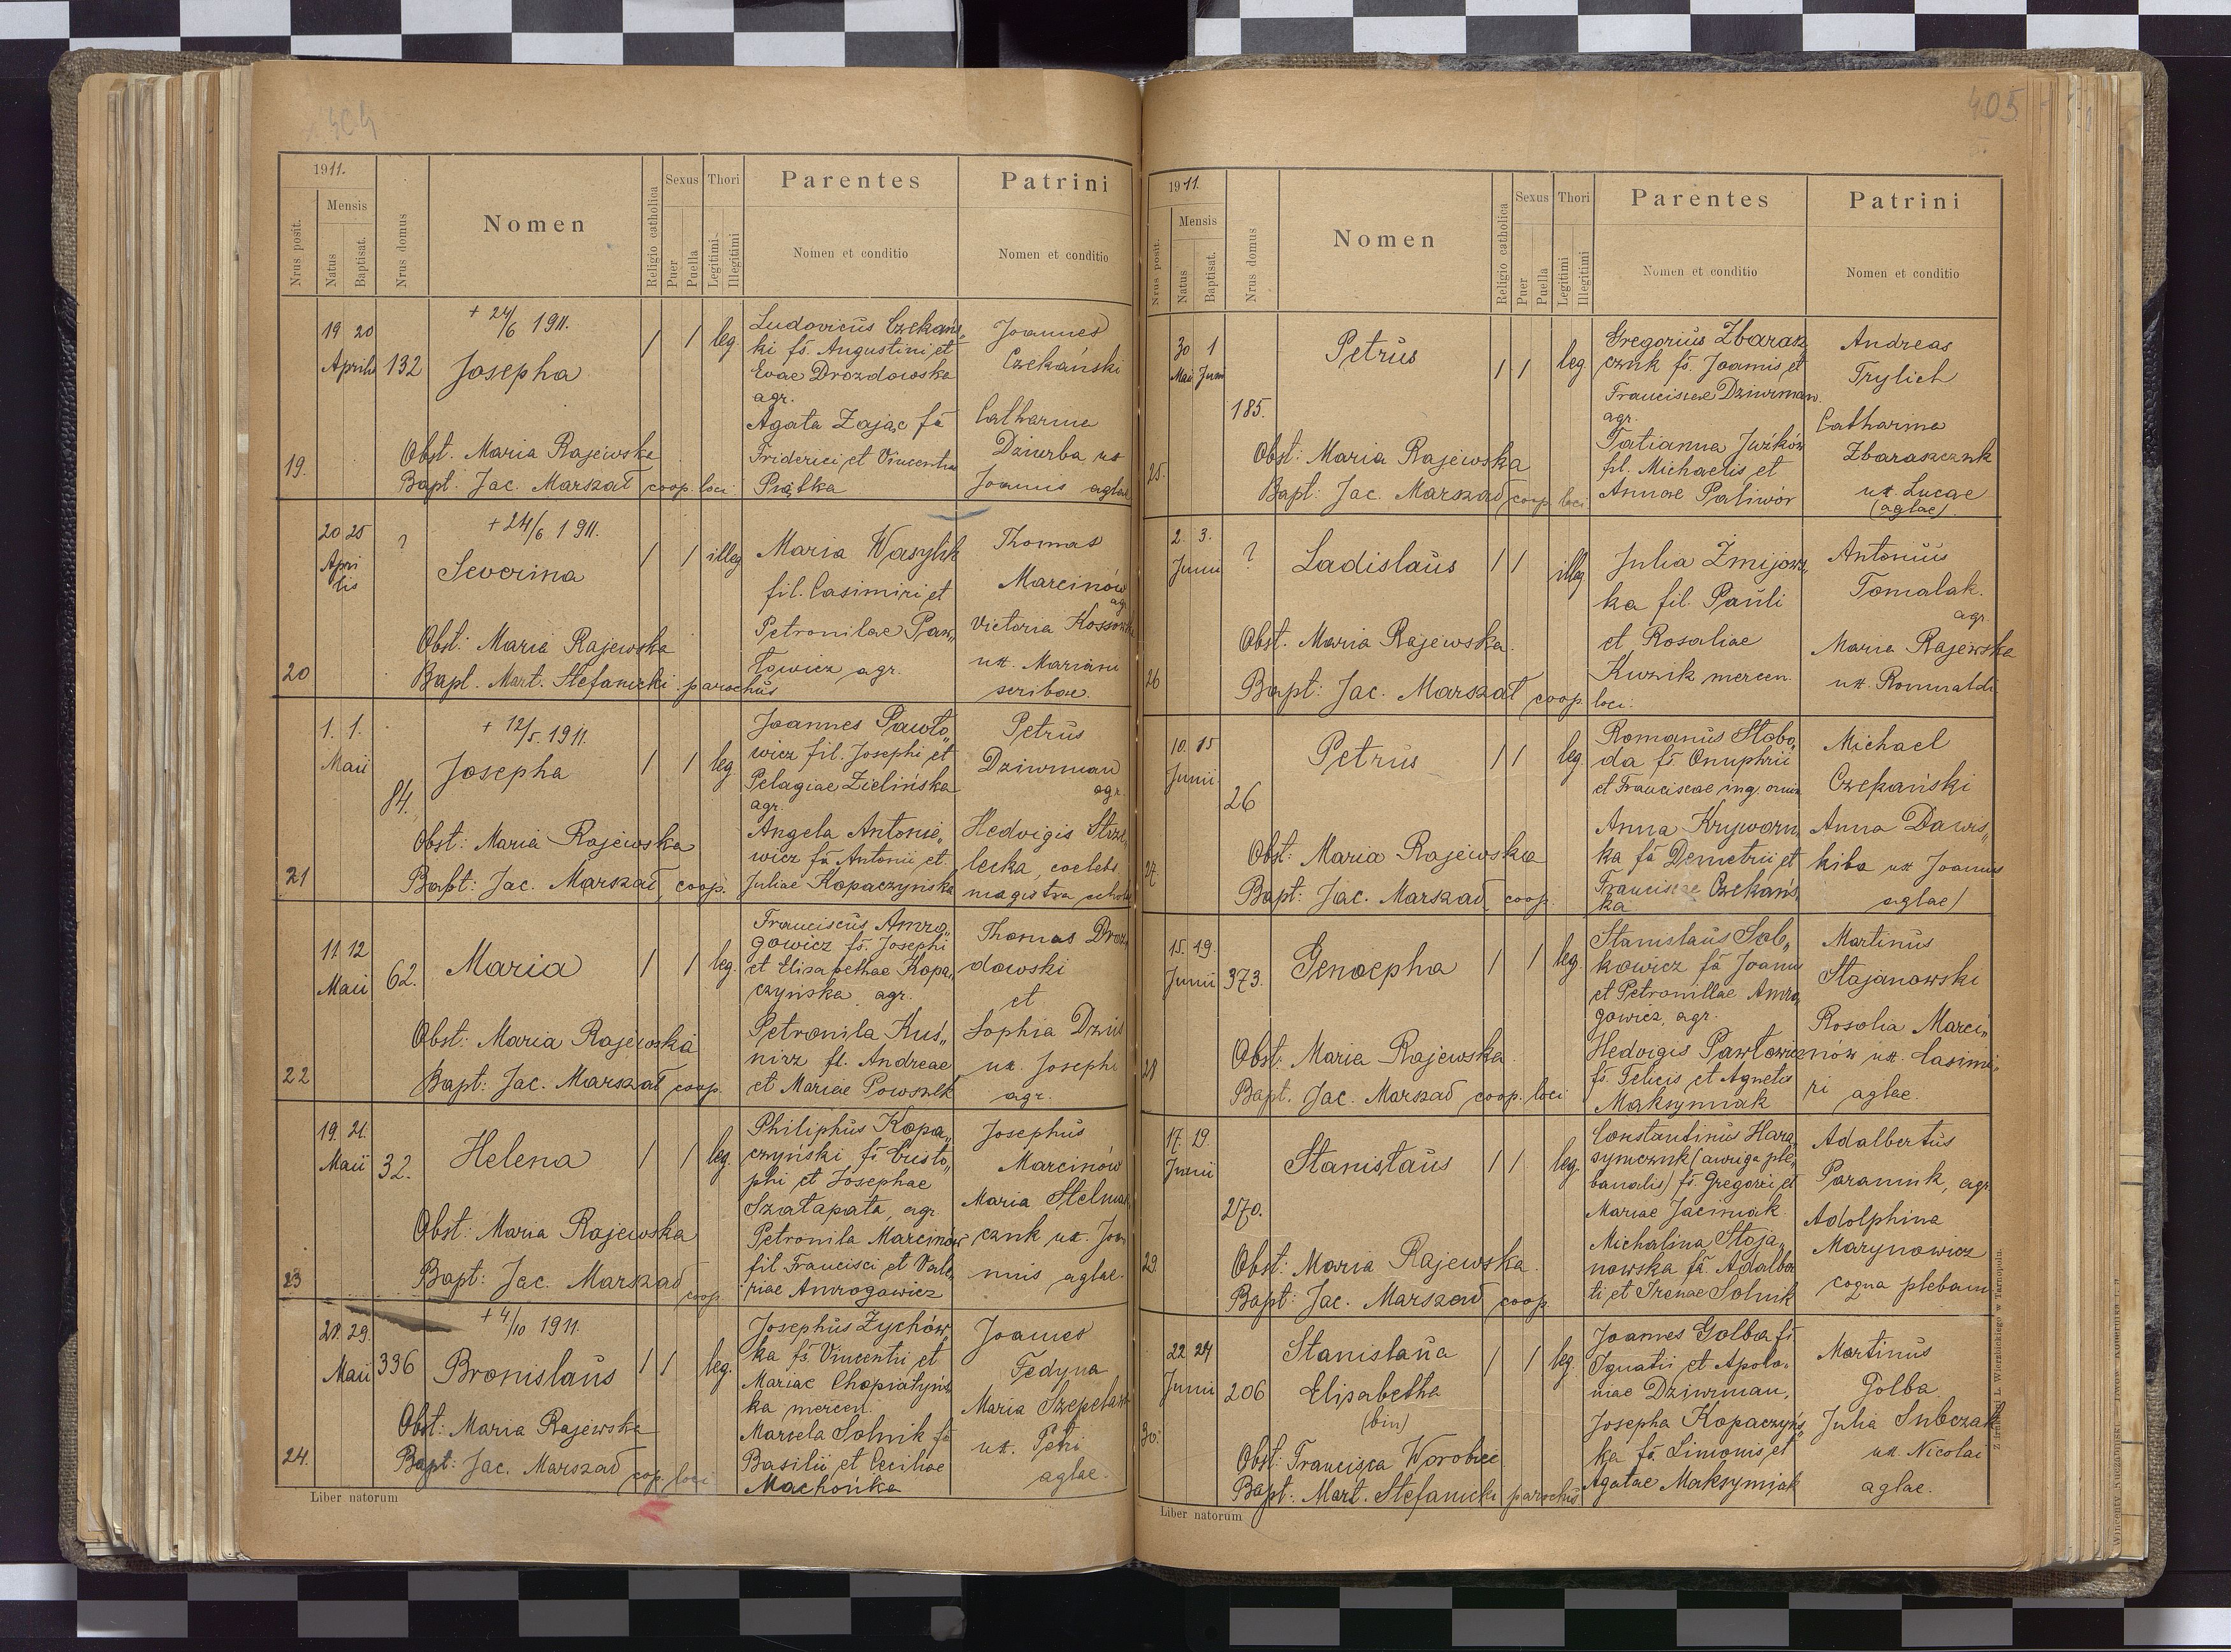 404
1911.
Nrus posit.
Mensis
Natus
Baptisat.
Nrus domus
Nomen
Religio catholica
Sexus
Puer
Puella
Thori
Legitimi
Illegitimi
Parentes
Nomen et conditio
Patrini
Nomen et conditio
19.
19 20
Aprilis
132
+ 24/6 1911.
Josepha
Obst. Maria Rajewska
Bapt. Jac. Marszał coop. loci
1 1 leg.
Ludovicus Czekańs„
ki fs. Augustini et
Evae Drozdowska
agr.
Agata Zając fa
Friderici et Vincentia
Piątka
Joannes
Czekański
Catharina
Dziurba ux
Joannis aglae
20
20 25
Apri
lis
?
+ 24/6 1911.
Severina
Obst: Maria Rajewska
Bapt. Mart. Stefanicki parochus
1 1 illeg
Maria Wasylik
fil. Casimiri et
Petronilae Paw„
łowicz agr.
Thomas
Marcinów
agr.
Victoria Kossowska
ux. Mariani
scribae.
21
1. 1.
Maii
84.
+ 12/5. 1911.
Josepha
Obst: Maria Rajewska
Bapt: Jac. Marszał, coop.
1 1 leg.
Joannes Pawło„
wicz fil. Josephi et
Pelagiae Zielińska
agr.
Angela Antonie„
wicz fa Antonii et
Juliae Kopaczyńska
Petrus
Dziurman
agr.
Hedvigis Strze„
lecka, coelebs
magistra schola
22
11. 12
Maii
62.
Maria
Obst: Maria Rajewska
Bapt: Jac. Marszał coop.
1 1 leg.
Franciscus Amro„
gowicz fs. Josephi
et Elisabethae Kopa„
czyńska, agr.
Petronila Kuś„
nirz fl. Andreae
et Mariae Powszek
Thomas Droz„
dowski
et
Sophia Dziis
ux. Josephi
agr.
23
19. 21.
Maii
32.
Helena
Obst: Maria Rajewska
Bapt: Jac. Marszał coop.
1 1 leg.
Philiphus Kopa„
czyński fs Cristo„
phi et Josephae
Szałapata, agr.
Petronila Marcinów
fil Francisci et Vale„
riae Amrogowicz
Josephus
Marcinów
Maria Stelma„
czuk ux. Joa
nnis aglae.
24.
28. 29.
Maii
336
+ 4/10 1911.
Bronislaus
Obst: Maria Rajewska
Bapt: Jac. Marszał cop. loci
1 1 leg.
Josephus Zychów„
ka fs. Vincentii et
Mariae Chopiatyńs„
ka mercen.
Marcela Solnik fa
Basilii et Ceciliae
Machońka
Joannes
Fedyna
Maria Szepelak
ux. Petri
aglae.
Liber natorum
405
1911.
Nrus posit.
Mensis
Natus
Baptisat.
Nrus domus
Nomen
Religio catholica
Sexus
Puer
Puella
Thori
Legitimi
Illegitimi
Parentes
Nomen et conditio
Patrini
Nomen et conditio
25.
30 1
Maii Junii
185.
Petrus
Obst: Maria Rajewska
Bapt: Jac. Marszał coop. loci
1 1 leg
Gregorius Zbarasz
czuk fs. Joannis et
Franciscae Dziurman
agr.
Tatianna Juźków
fil. Michaelis et
Annae Paliwór
Andreas
Trylich
Catharina
Zbaraszczuk
ux. Lucae
(aglae).
26
2. 3.
Junii
?
Ladislaus
Obst. Maria Rajewska.
Bapt: Jac. Marszał coop. loci.
1 1 illeg
Julia Żmijows„
ka fil. Pauli
et Rosaliae
Kuznik mercen.
Antonius
Tomalak.
agr.
Maria Rajewska
ux. Romualdi
27.
10. 15
Junii
26
Petrus
Obst: Maria Rajewska
Bapt: Jac. Marszał, coop.
1 1 leg
Romanus Słobo„
da fs. Onuphrii
et Franciscae
Anna Kryworu„
ka fa Demetrii et
Franciscae Czekańs
ka
Michael
Czekański
Anna Dawis„
kiba ux Joannis
aglae)
28
15. 19.
Junii
373.
Genoepha
Obst: Maria Rajewska.
Bapt. Jac. Marszał coop. loci
1 1 leg.
Stanislaus Sob„
kowicz fa Joanni
et Petronillae Amro„
gowicz, agr.
Hedvigis Pawłowicz
fs. Felicis et Agnetis
Maksymiak
Martinus
Stojanowski
Rosolia Marci„
nów ux. Casimi„
ri aglae.
29.
17. 19.
Junii
270.
Stanislaus
Obst: Maria Rajewska.
Bapt: Jac. Marszał coop.
1 1 leg.
Constantinus Hara„
symczuk (auriga ple„
banalis) fs. Gregorii et
Mariae Jaciniak.
Michalina Stoja„
nowska fa. Adalber
ti et Irenae Solnik
Adalbertus
Paraniuk, agr.
Adolphina
Marynowicz
cogna plebani
30.
22 24
Junii
206
Stanislaua
Elisabetha
(bin)
Obst: Francisca Worobiec
Bapt: Mart. Stefanicki parochus
1 1 leg.
Joannes Golba fs
Ignatii et Apolo„
niae Dziurman,
Josepha Kopaczyńs„
ka fa. Simonis et
Agatae Maksymiak
Martinus
Golba.
Julia Subczak
ux. Nicolai
aglae.
Liber natorum
Z drukarni L. Wierzbickiego w Tarnopolu.